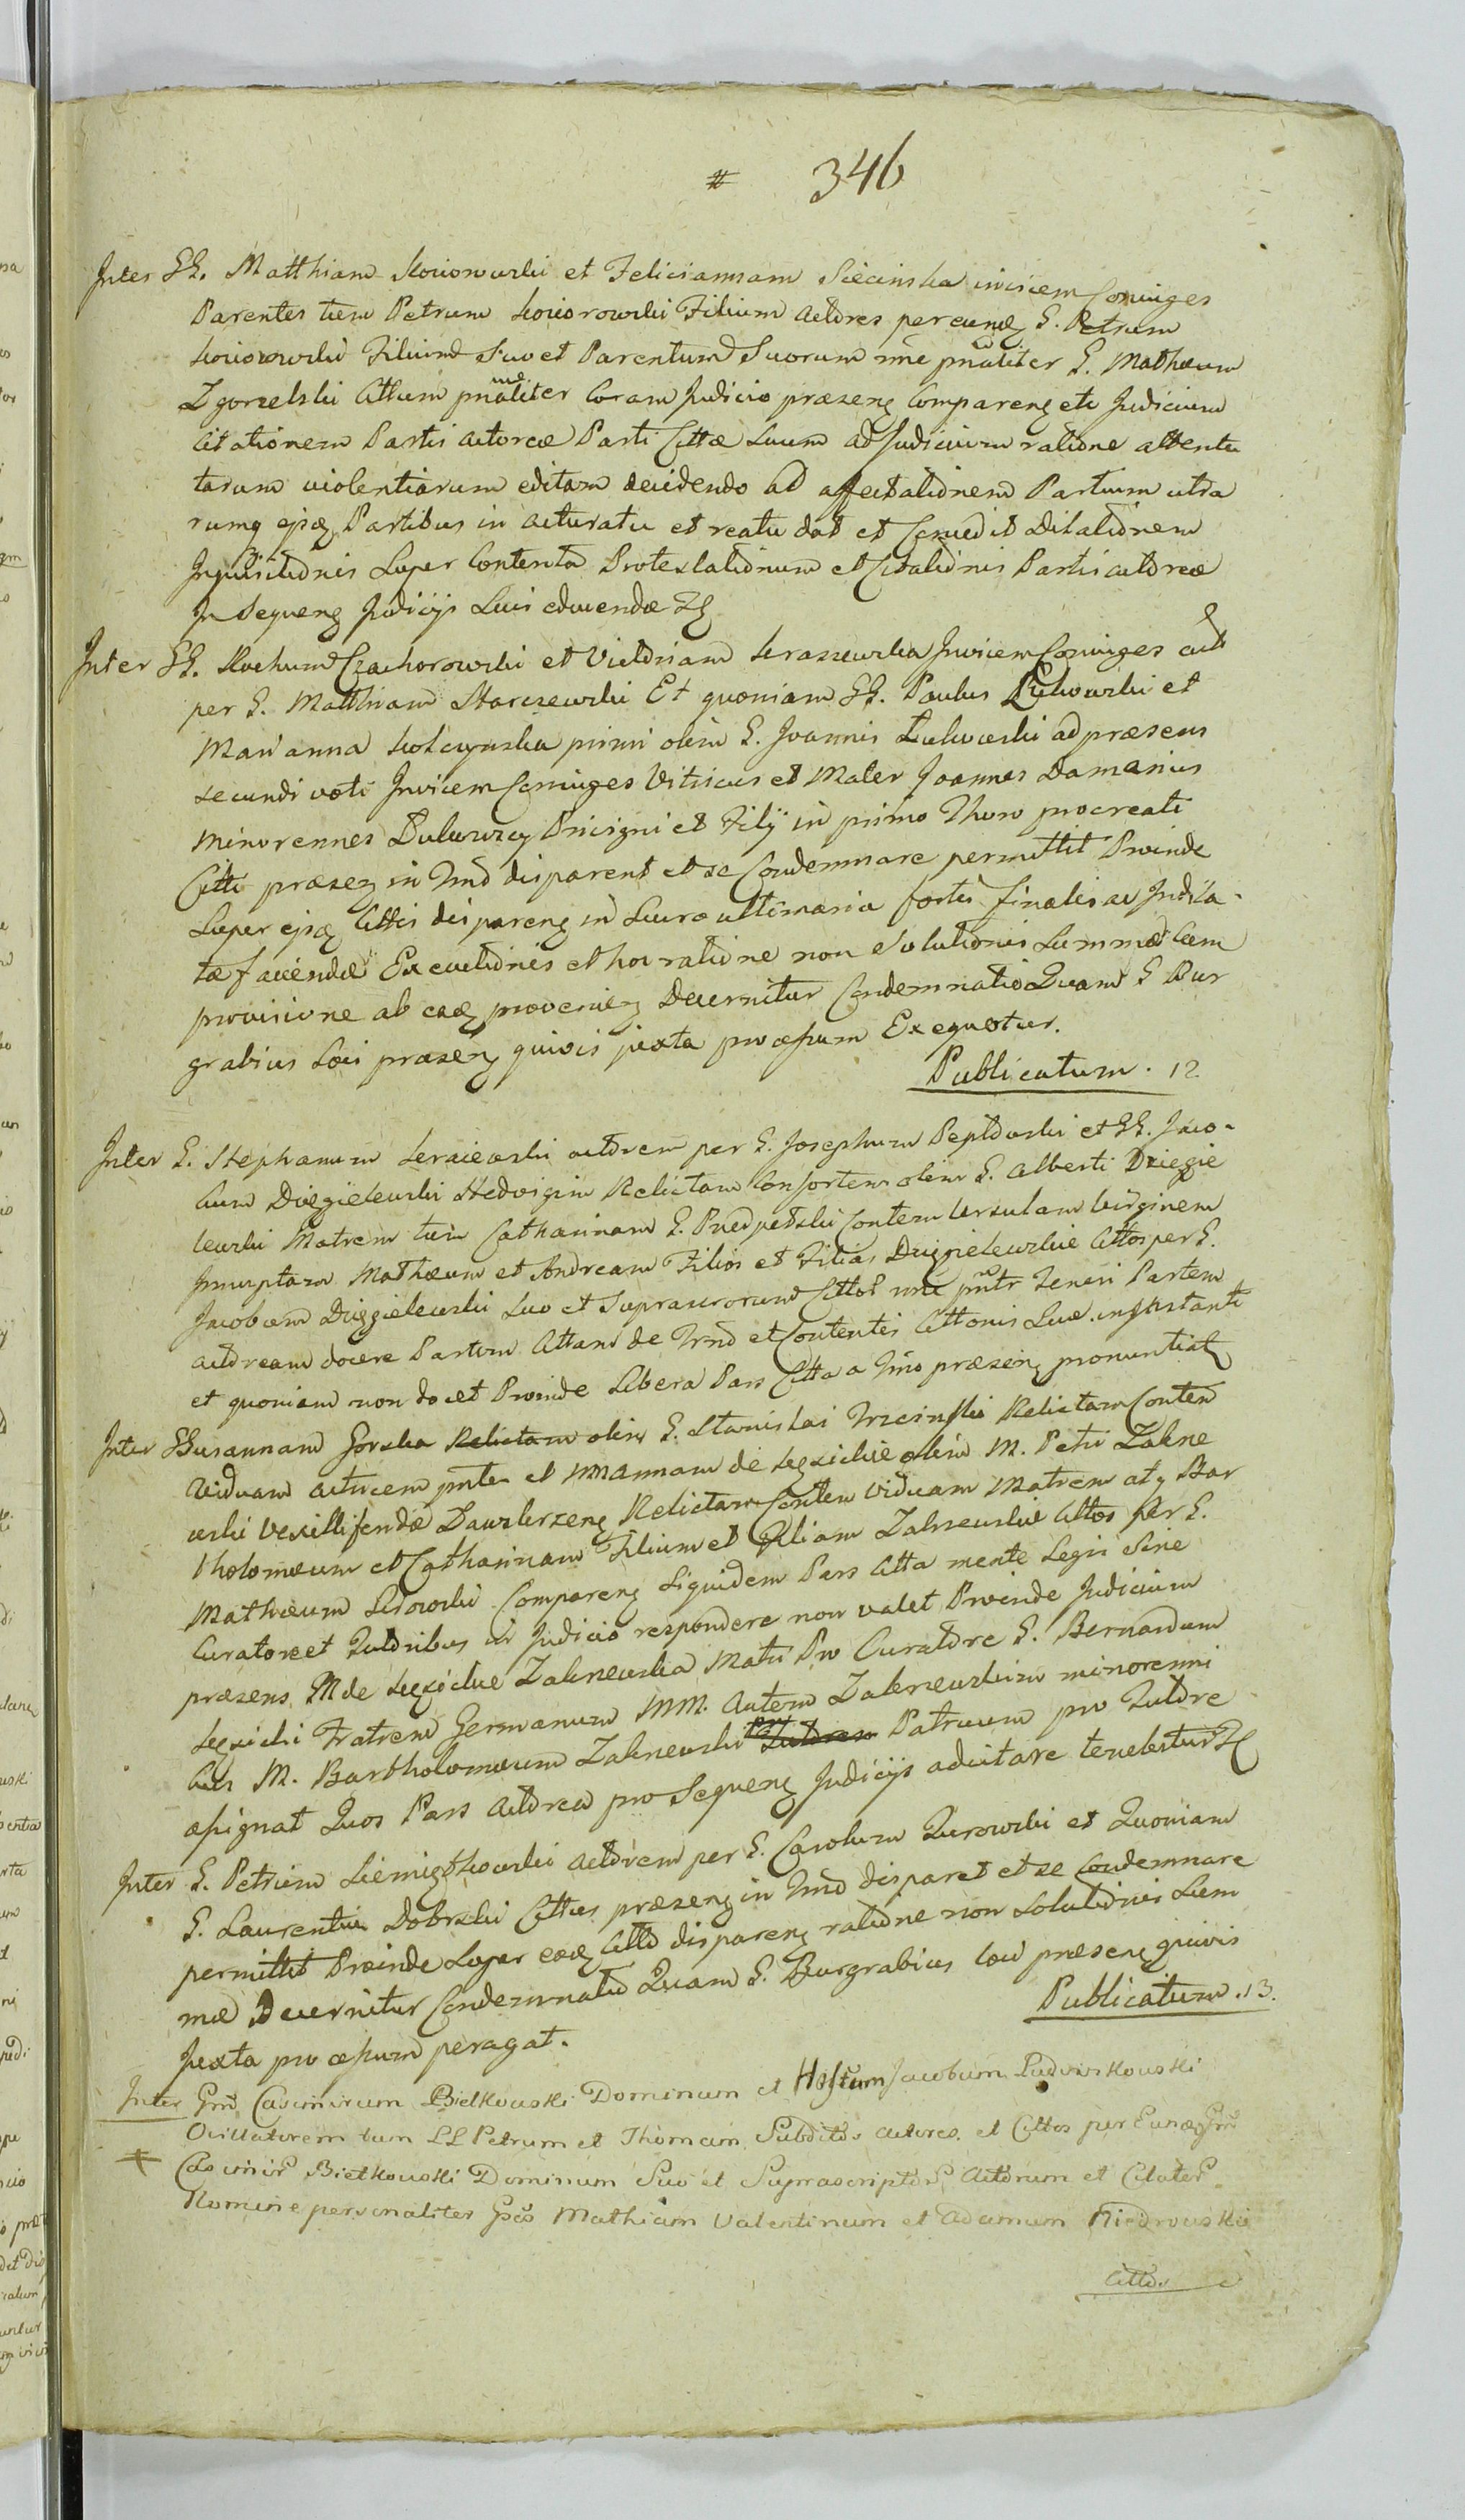 # 346
Inter GG. Matthiam Kouorowski et Feliciannam Siecinska invicem Coniuges
Parentes tum Petrum Kouorowski Filium Actores per eund G. Petrum
Kouorowski Filium Suo et Parentum Suorum nne pnaliter G. Mathæum
Zgorzelski Cttum pnaliter Coram Judicio præsenz Comparenz etc Judicium
Citationem Partis Actoreæ Parti Cttæ Suum ad Judicium ratione attenta
tarum violentiarum editam decidendo ad affectationem Partium utra
rumq ejsq Partibus in acturatu et reatu dat et Concedit Dilationem
Inquisitionis Super Contenta Protestationum et Citationis Partis actoreæ
In Sequenz Judicijs Luci educendæ
Inter GG. Rochum Czachorowski et Victoriam Kraszewska Invicem Coniuges act
per G. Matthiam Starczewski Et quoniam GG. Paulus Lukowski et
Marianna Kolczynska primi olim G. Joannis Lukowski ad præsens
secundi voti Invicem Coniuges Vitricus et Mater Joannes Damanius
minorennes Lukowscy Privigni et Filij in primo Thoro procreati
Citti præsenz in Tmo disparent et se Condemnare permittit Proinde
Super ejsq Cttis disparenz in Lucro ultimaria fortis finalis ac Indila-
tæ faciendæ Executionis et hoc ratione non Solutionis Summæ Cum
provisione ab eadq provenienz Decernitur Condemnatio Quam G Bur
grabius Loci præsenz quivis juxta processum Exequetur.
Publicatum. 12
Inter G. Stephanum Kraiewski actorem per G. Josephum Peptowski et GG. Jaco-
bum Dziegielewski Hedvigim Relictam Consortem olim G. Alberti Dziegie
lewski Matrem tum Catharinam G. Przedpelski Contem Ursulam Virginem
Innuptam Mathæum et Andream Filios et Filias Dziegielewskie Cttos per G.
Jacobum Dziegielewski Suo et Suprascrorum Cttor nne pnlr Teneri Partem
actoream docere Partem Cttam de Trno et Contentis Cttonis Suæ in Instanti
et quoniam non docet Proinde Libera Pars Ctta a Tmo præsenz pronuntiat
Inter Susannam Gorska Relictam olim G. Stanislai Trzcinski Relictam Contem
Viduam actricem pnte et MM Annam de olim M. Petri Zakrze
wski Vexilliferidæ Relictam Contem Viduam Matrem atq Bar
tholomæum et Catharinam Filium et Filiam Zakrzewskie Cttos per G.
Mathæum Comparenz Siquidem Pars Ctta mente Legis Sine
Curatore et Tutoribus in Judicio respondere non valet Proinde Judicium
præsens M de Zakrzewska Matri Pro Curatore G. Bernardum
Fratrem Germanum MM. Autem Zakrzewskim minorenni
bus M. Bartholomæum Zakrzewski Tutorem Patruum pro Tutore
assignat Quos Pars Actorea pro Sequenz Judicijs adcitare tenebitur
Inter G. Petrum Siemiątkowski Actorem per G. Carolum Turowski et Quoniam
G. Laurentius Dobrski Cttus præsenz in Tmo disparet et se Condemnare
permittit Proinde Super eodq Ctto disparenz ratione non Solutionis Sum
mæ Decernitur Condemnatio Quam G. Burgrabius loci præsenz quivis
Juxta processum peragat.
Publicatum. 13.
Inter Gm Casimirum Bielkowski Dominum et Hostum Jacobum Ludwikowski
tum LL Petrum et Thomam Subditos Actores et Cttos per Eundq Gm
Casimir Bielkowski Dominum Suo et Suprascriptor Actorum et Citator
Nomine personaliter Gsos Mathiam Valentinum et Adamum Niedrowskie
Cttos